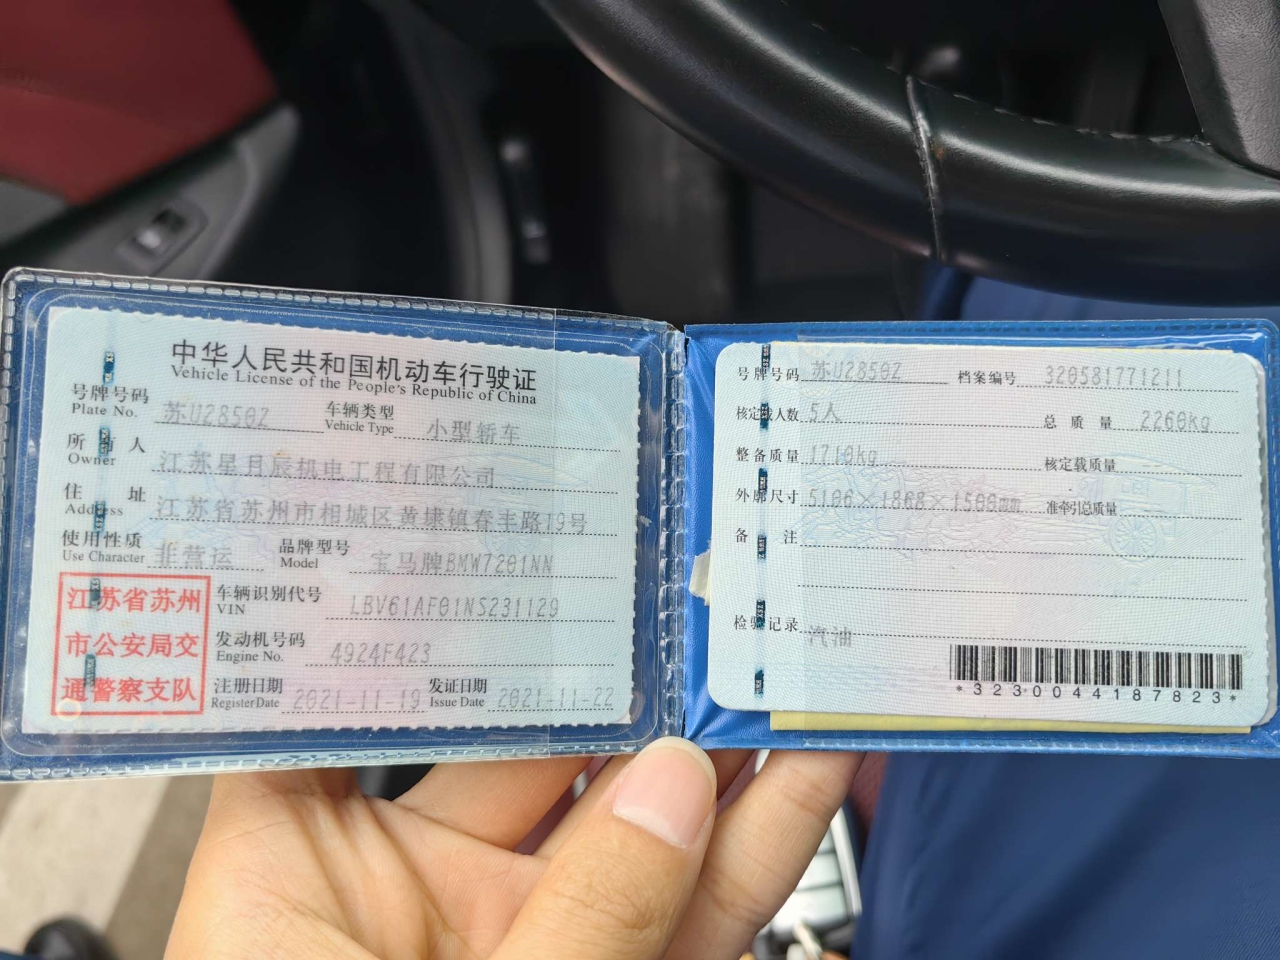 中华人民共和国机动车行驶证
Vehicle License of the People's Republic of China
号牌号码 苏U2850Z 车辆类型 小型轿车
Plate No. Vehicle Type
所有人 江苏星月辰机电工程有限公司
Owner
住址 江苏省苏州市相城区黄埭镇春丰路19号
Address
使用性质 非营运 品牌型号 宝马牌BMW7201NN
Use Character Model
江苏省苏州
市公安局交
通警察支队
车辆识别代号 LBV61AF01NS231129
VIN
发动机号码 4924F423
Engine No.
注册日期 2021-11-19 发证日期 2021-11-22
Register Date Issue Date
号牌号码 苏U2850Z 档案编号 320581771211
核定载人数 5人 总质量 2260kg
整备质量 1710kg 核定载质量 --
外廓尺寸 5106×1868×1500mm 准牵引总质量
备注
检验记录 汽油
*3230044187823*